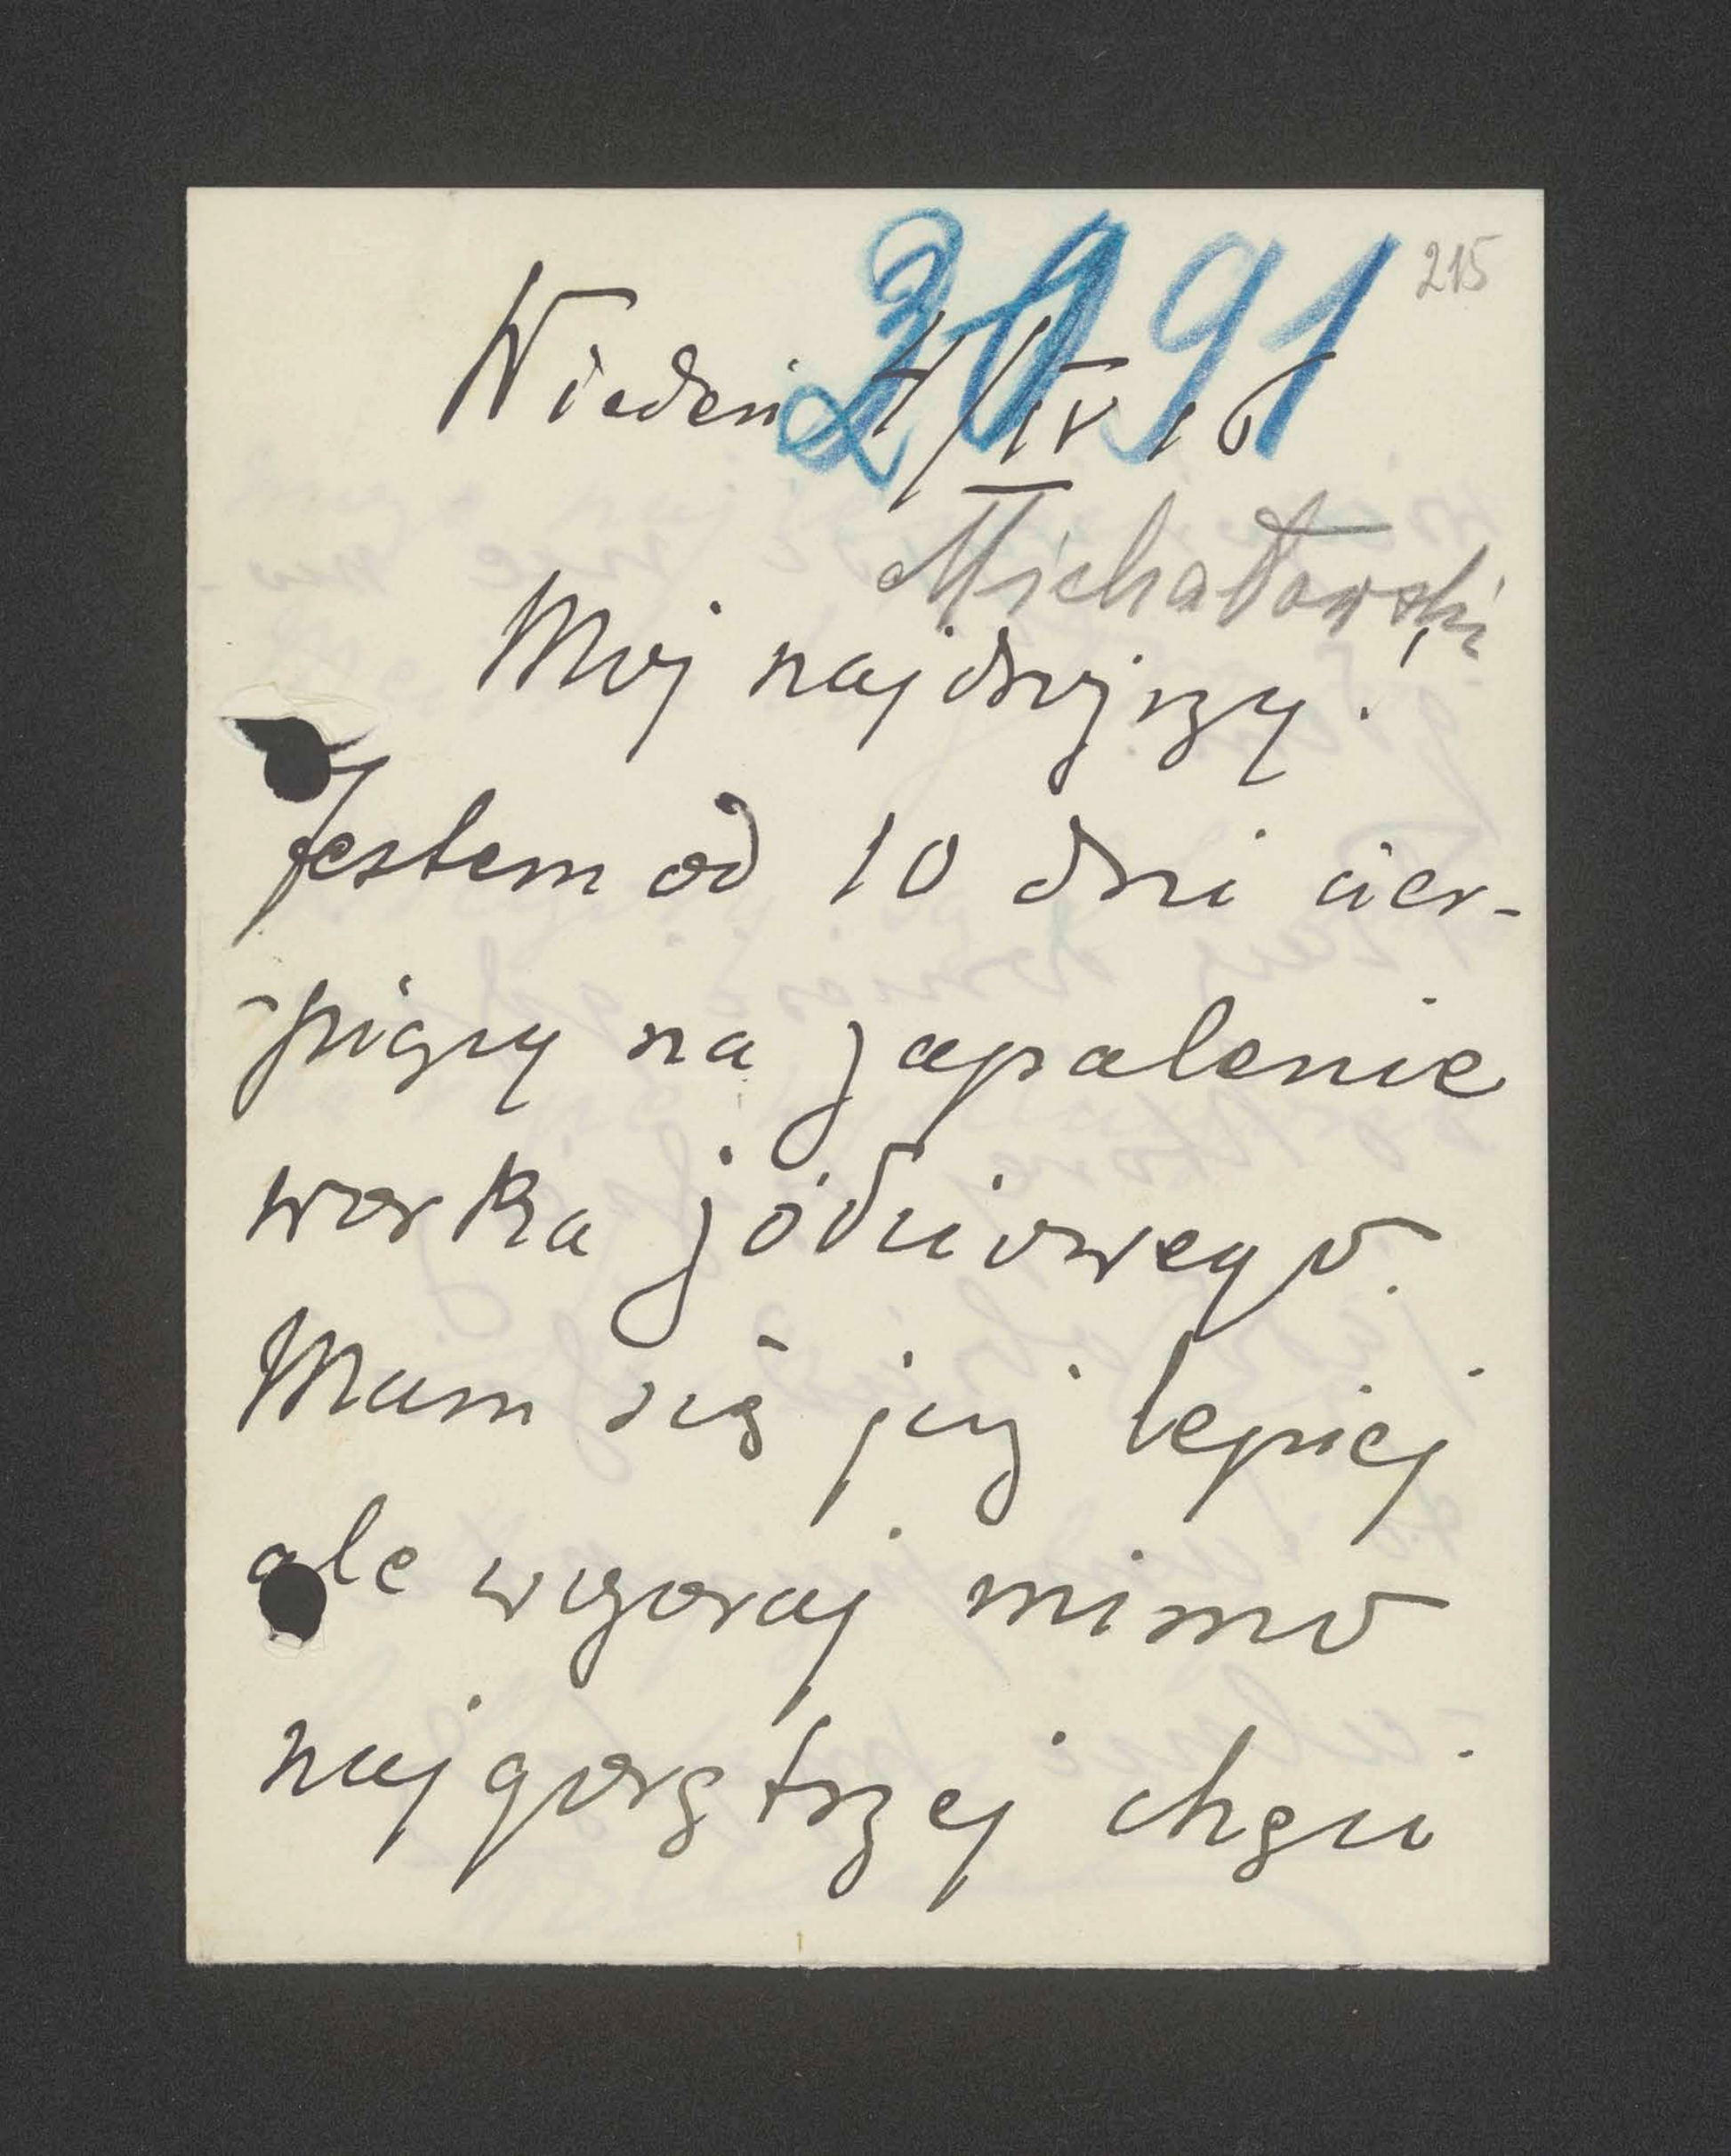 215
3091
Wiedeń 4/IV 16
Michałowski
Mój najdroższy!
Jestem od 10 dni cier-
piący na zapalenie
worka żółciowego.
Mam się już lepiej
ale wczoraj mimo
najgorętszej chęci